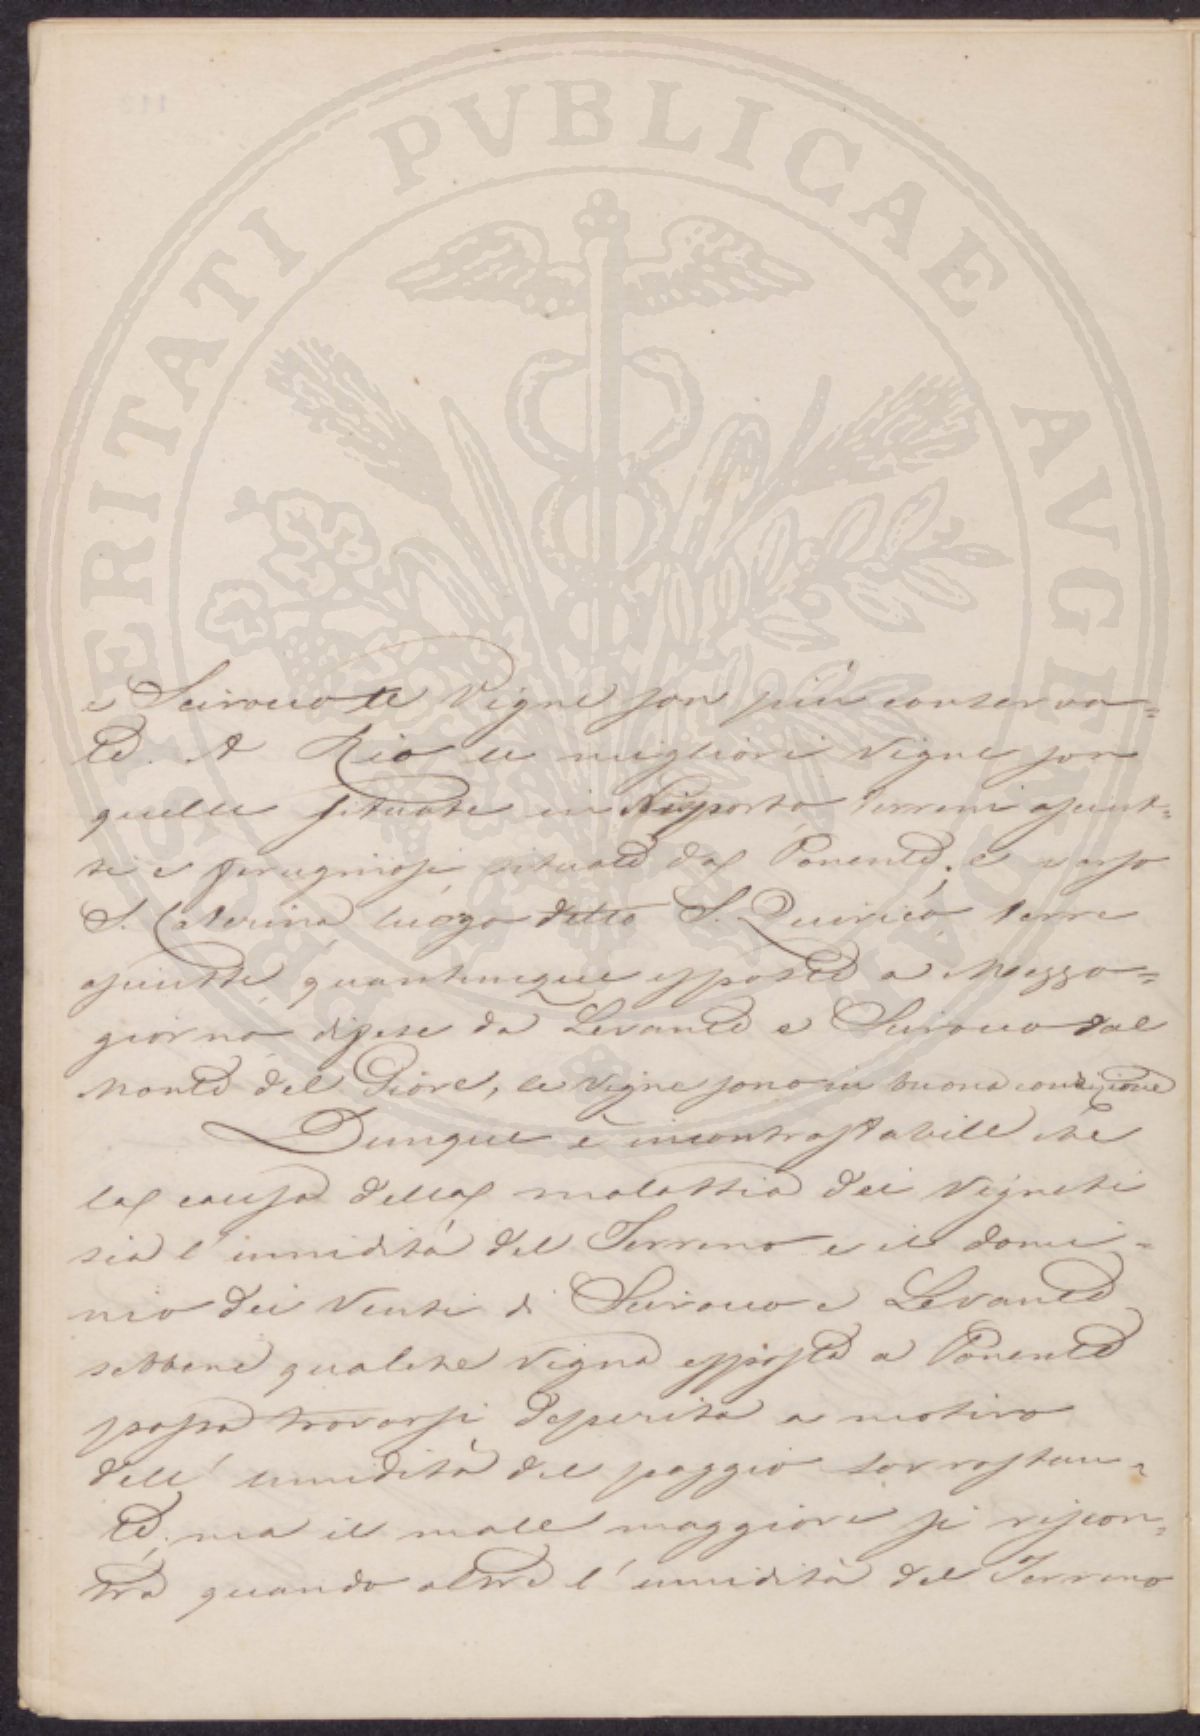 PROSPERITATI PVBLICAE AVGENDAE
e Scirocco le Vigne son più conserva=
te. A Rio le migliori Vigne son
quelle situate in Rioporto, terreni asciut=
ti e ferugniosi situate dal Ponente; e verso
S. Caterina luogo detto S. Quirico, terre
asciutte, quantunque esposte a Mezzo=
giorno difese da Levante e Scirocco dal
Monte del Giove, le vigne sono in buona condizione
Dunque è incontrastabile che
la causa della malattia dei Vigneti
sia l'umidità del Terreno e il domi=
nio dei Venti di Scirocco e Levante
sebbene qualche Vigna esposta a Ponente
possa trovarsi deperita a motivo
dell'umidità del poggio sovrastan=
te; ma il male maggiore si riscon=
tra quando oltre l'umidità del Terreno